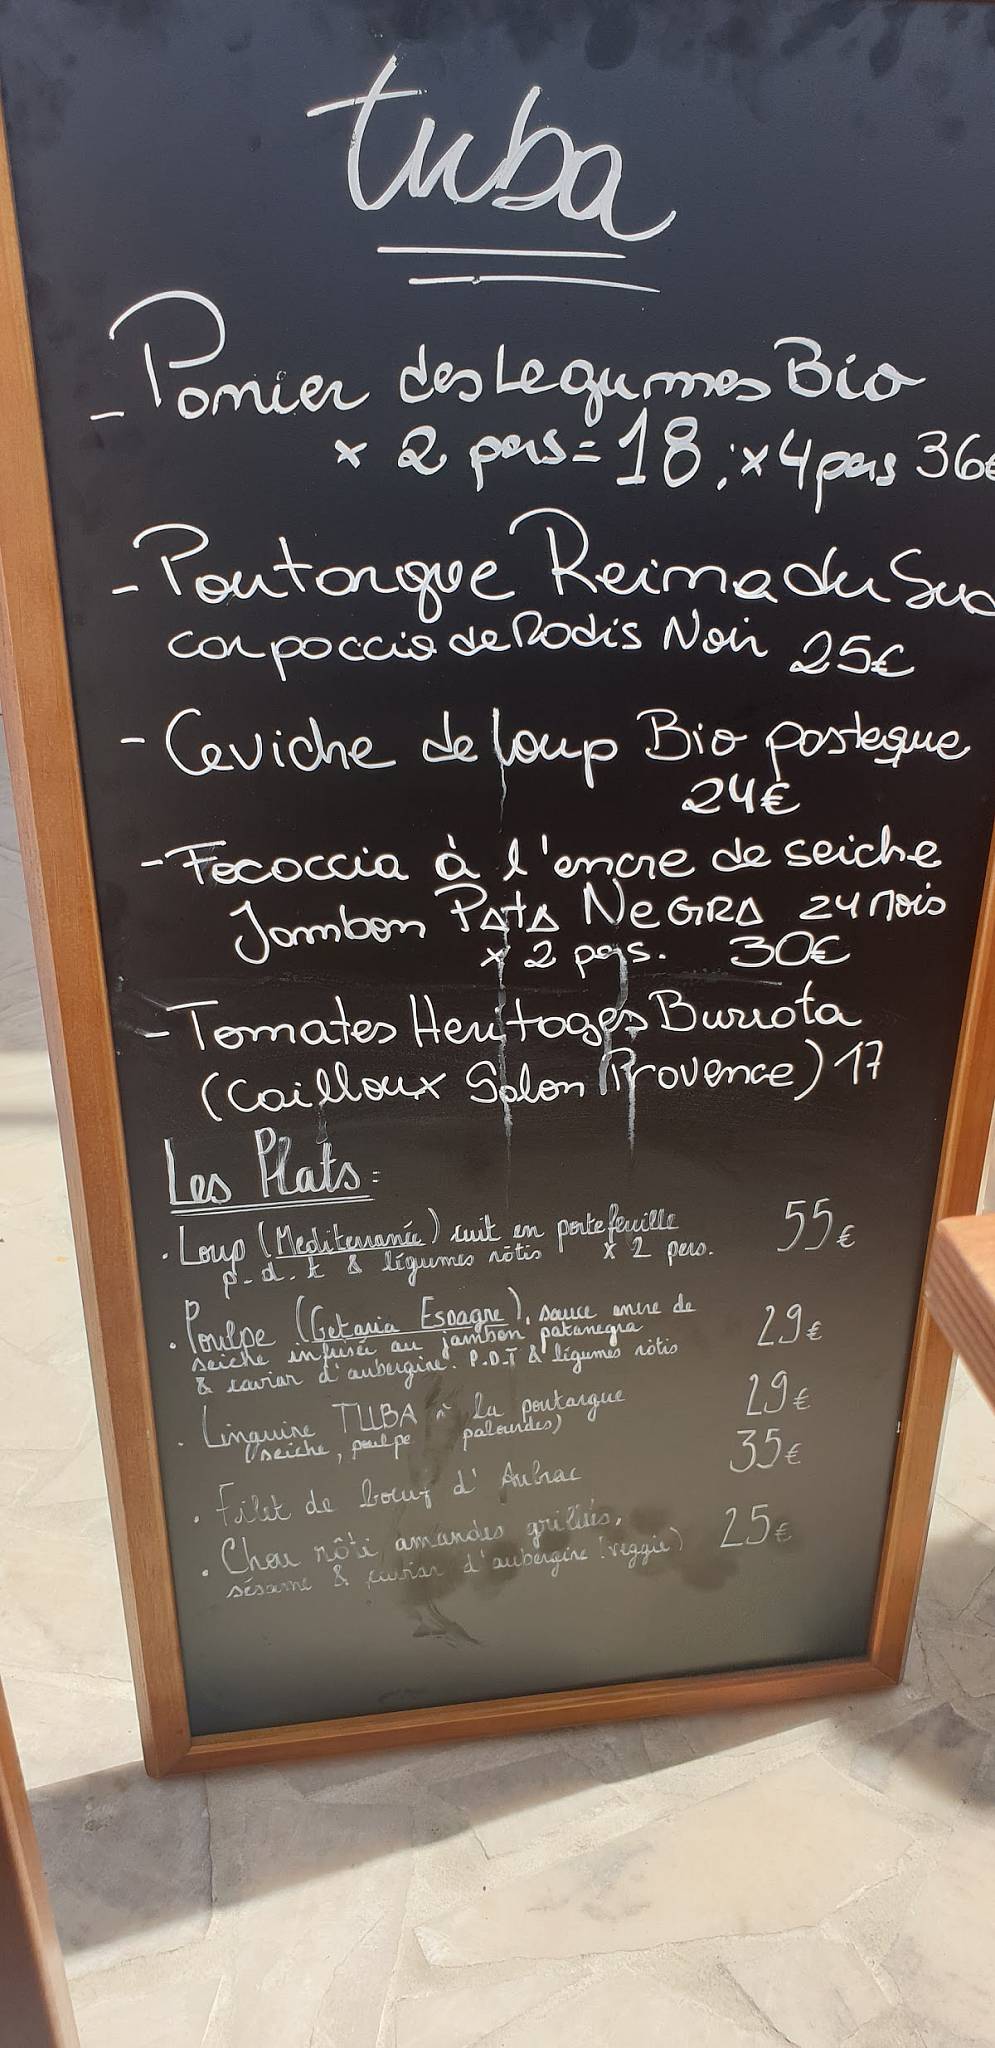 tuba
- Panier des Legumes Bio
x 2 pers = 18 ; x 4 pers 36€
- Poutargue Reine du Sud
carpaccio de Radis Noir 25€
- Ceviche de loup Bio pasteque
24€
- Fococcia à l'encre de seiche
Jambon PAtA NeGRA 24 Mois
x 2 pers. 30€
- Tomates Heritages Burrata
(Cailloux Salon Provence) 17
Les Plats :
. Loup (Mediterranée) cuit en portefeuille 55€
p. d. t & légumes rôtis x 2 pers.
. Poulpe (Getaria Espagne), sauce encre de 29€
seiche infusée au jambon patanegra
& caviar d'aubergine. P.D.T & légumes rôtis
. Linguine TUBA à la poutargue 29€
(seiche, poulpe palourdes)
. Filet de boeuf d'Aubrac 35€
. Chou rôti amandes grillées, 25€
sésame & caviar d'aubergine (veggie)